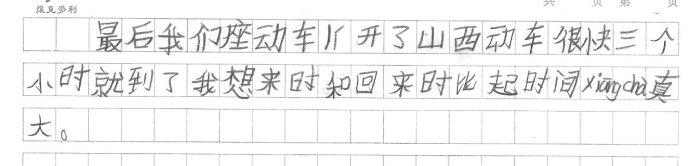 维义多利 共 页 第 页
最后我们座动车八开了山西动车很快三个
小时就到了我想来时和回来时比起时间xiāngchà真
大。